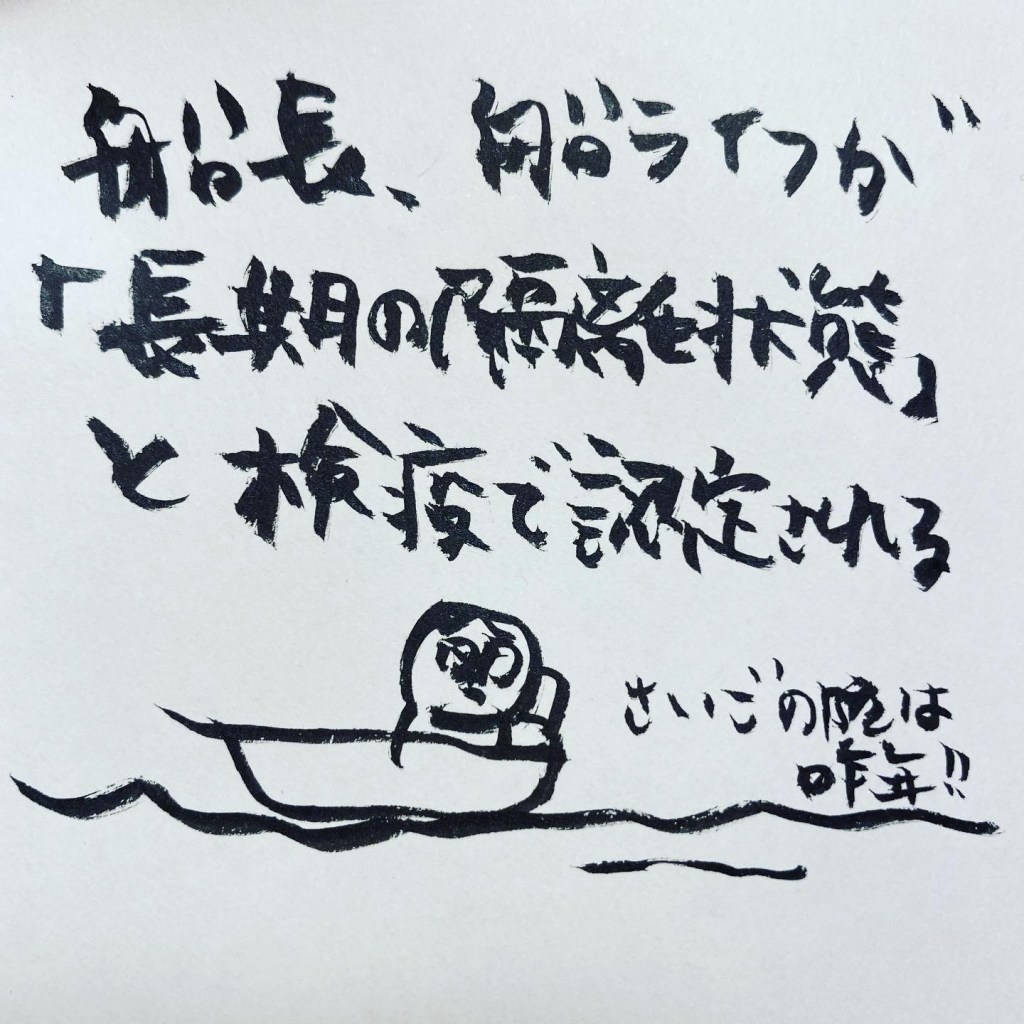 船長、船ライフが
「長期の隔離状態」
と検疫で認定される
さいごの陸は
昨年!!